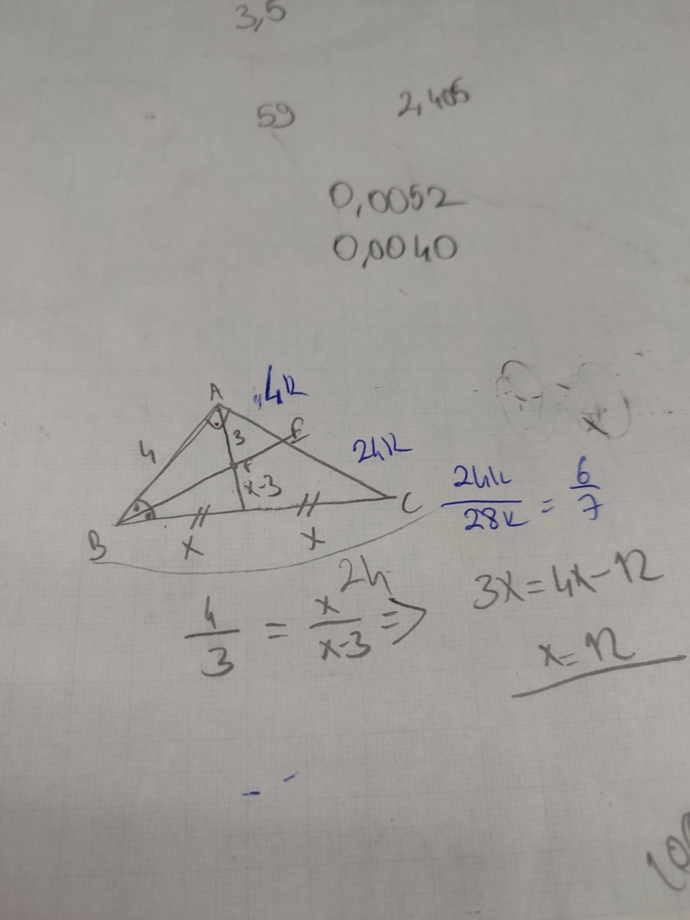 3,5
59
2,405
0,0052
0,0040
A
4k
4
3
E
F
24k
x-3
B
C
x
x
24
24k/28k = 6/7
4/3 = x/x-3 =>
3x=4x-12
x=12